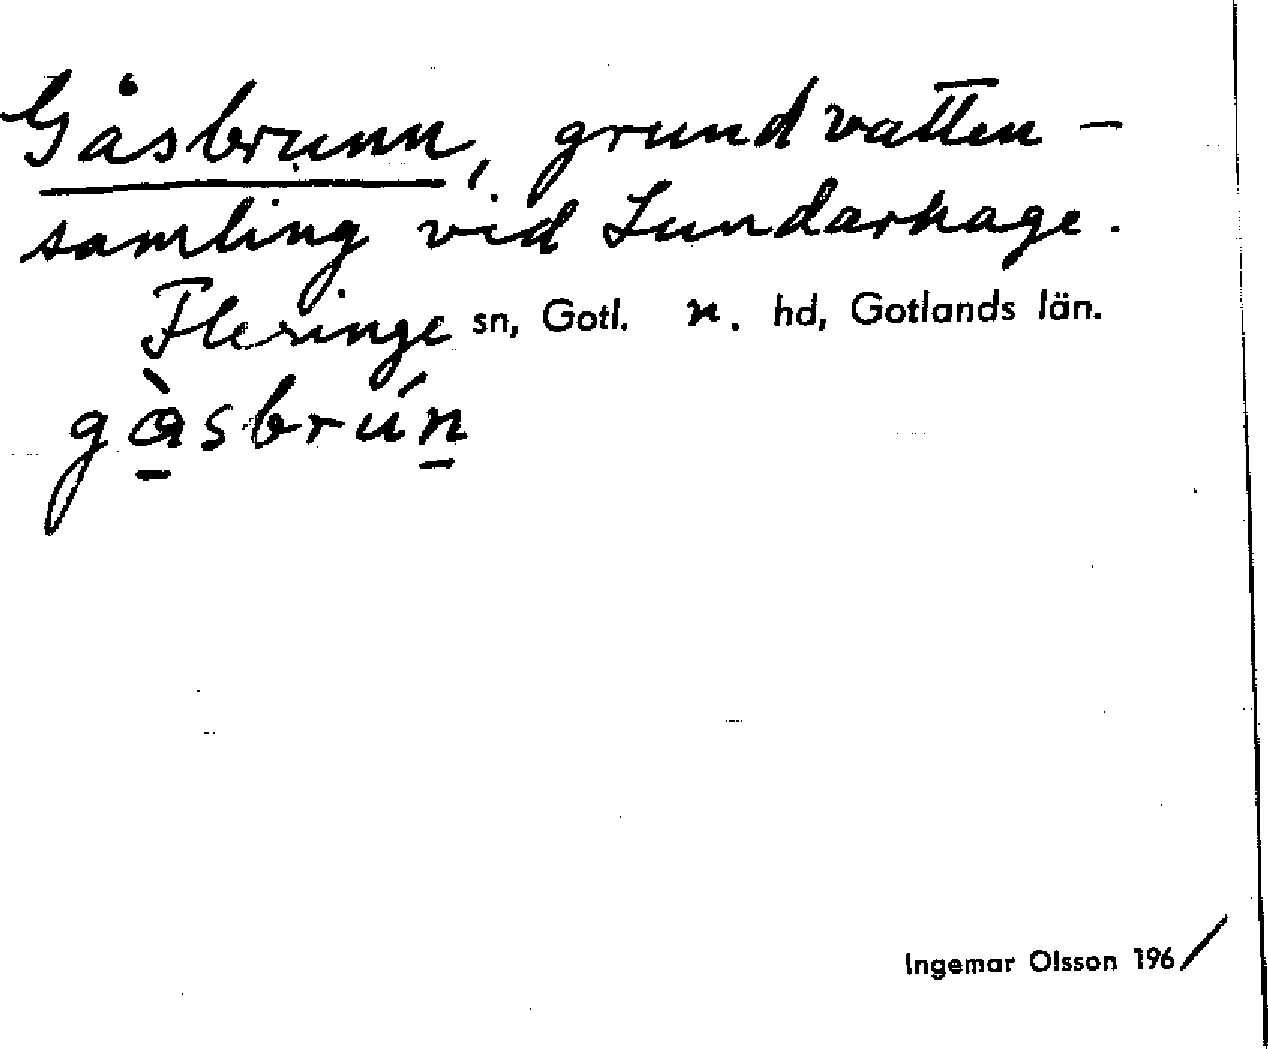 Gåsbrunn, grundvatten-
samling vid Lundarhage.
Fleringe sn, Gotl. n. hd, Gotlands län.
gàsbrún
Ingemar Olsson 196/